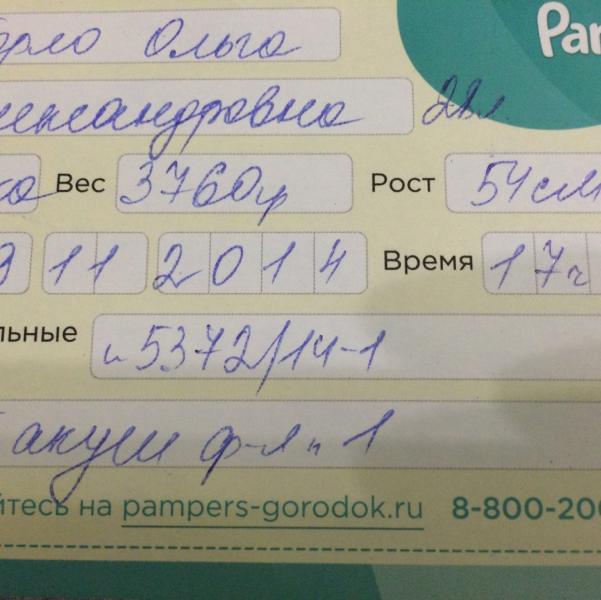 Pam
орло Ольга
лександровна 28л
ка Вес 3760гр Рост 54см
3 11 2014 Время 17ч
льные и 5372/14-1
акуш ф-л п 1
йтесь на pampers-gorodok.ru 8-800-200